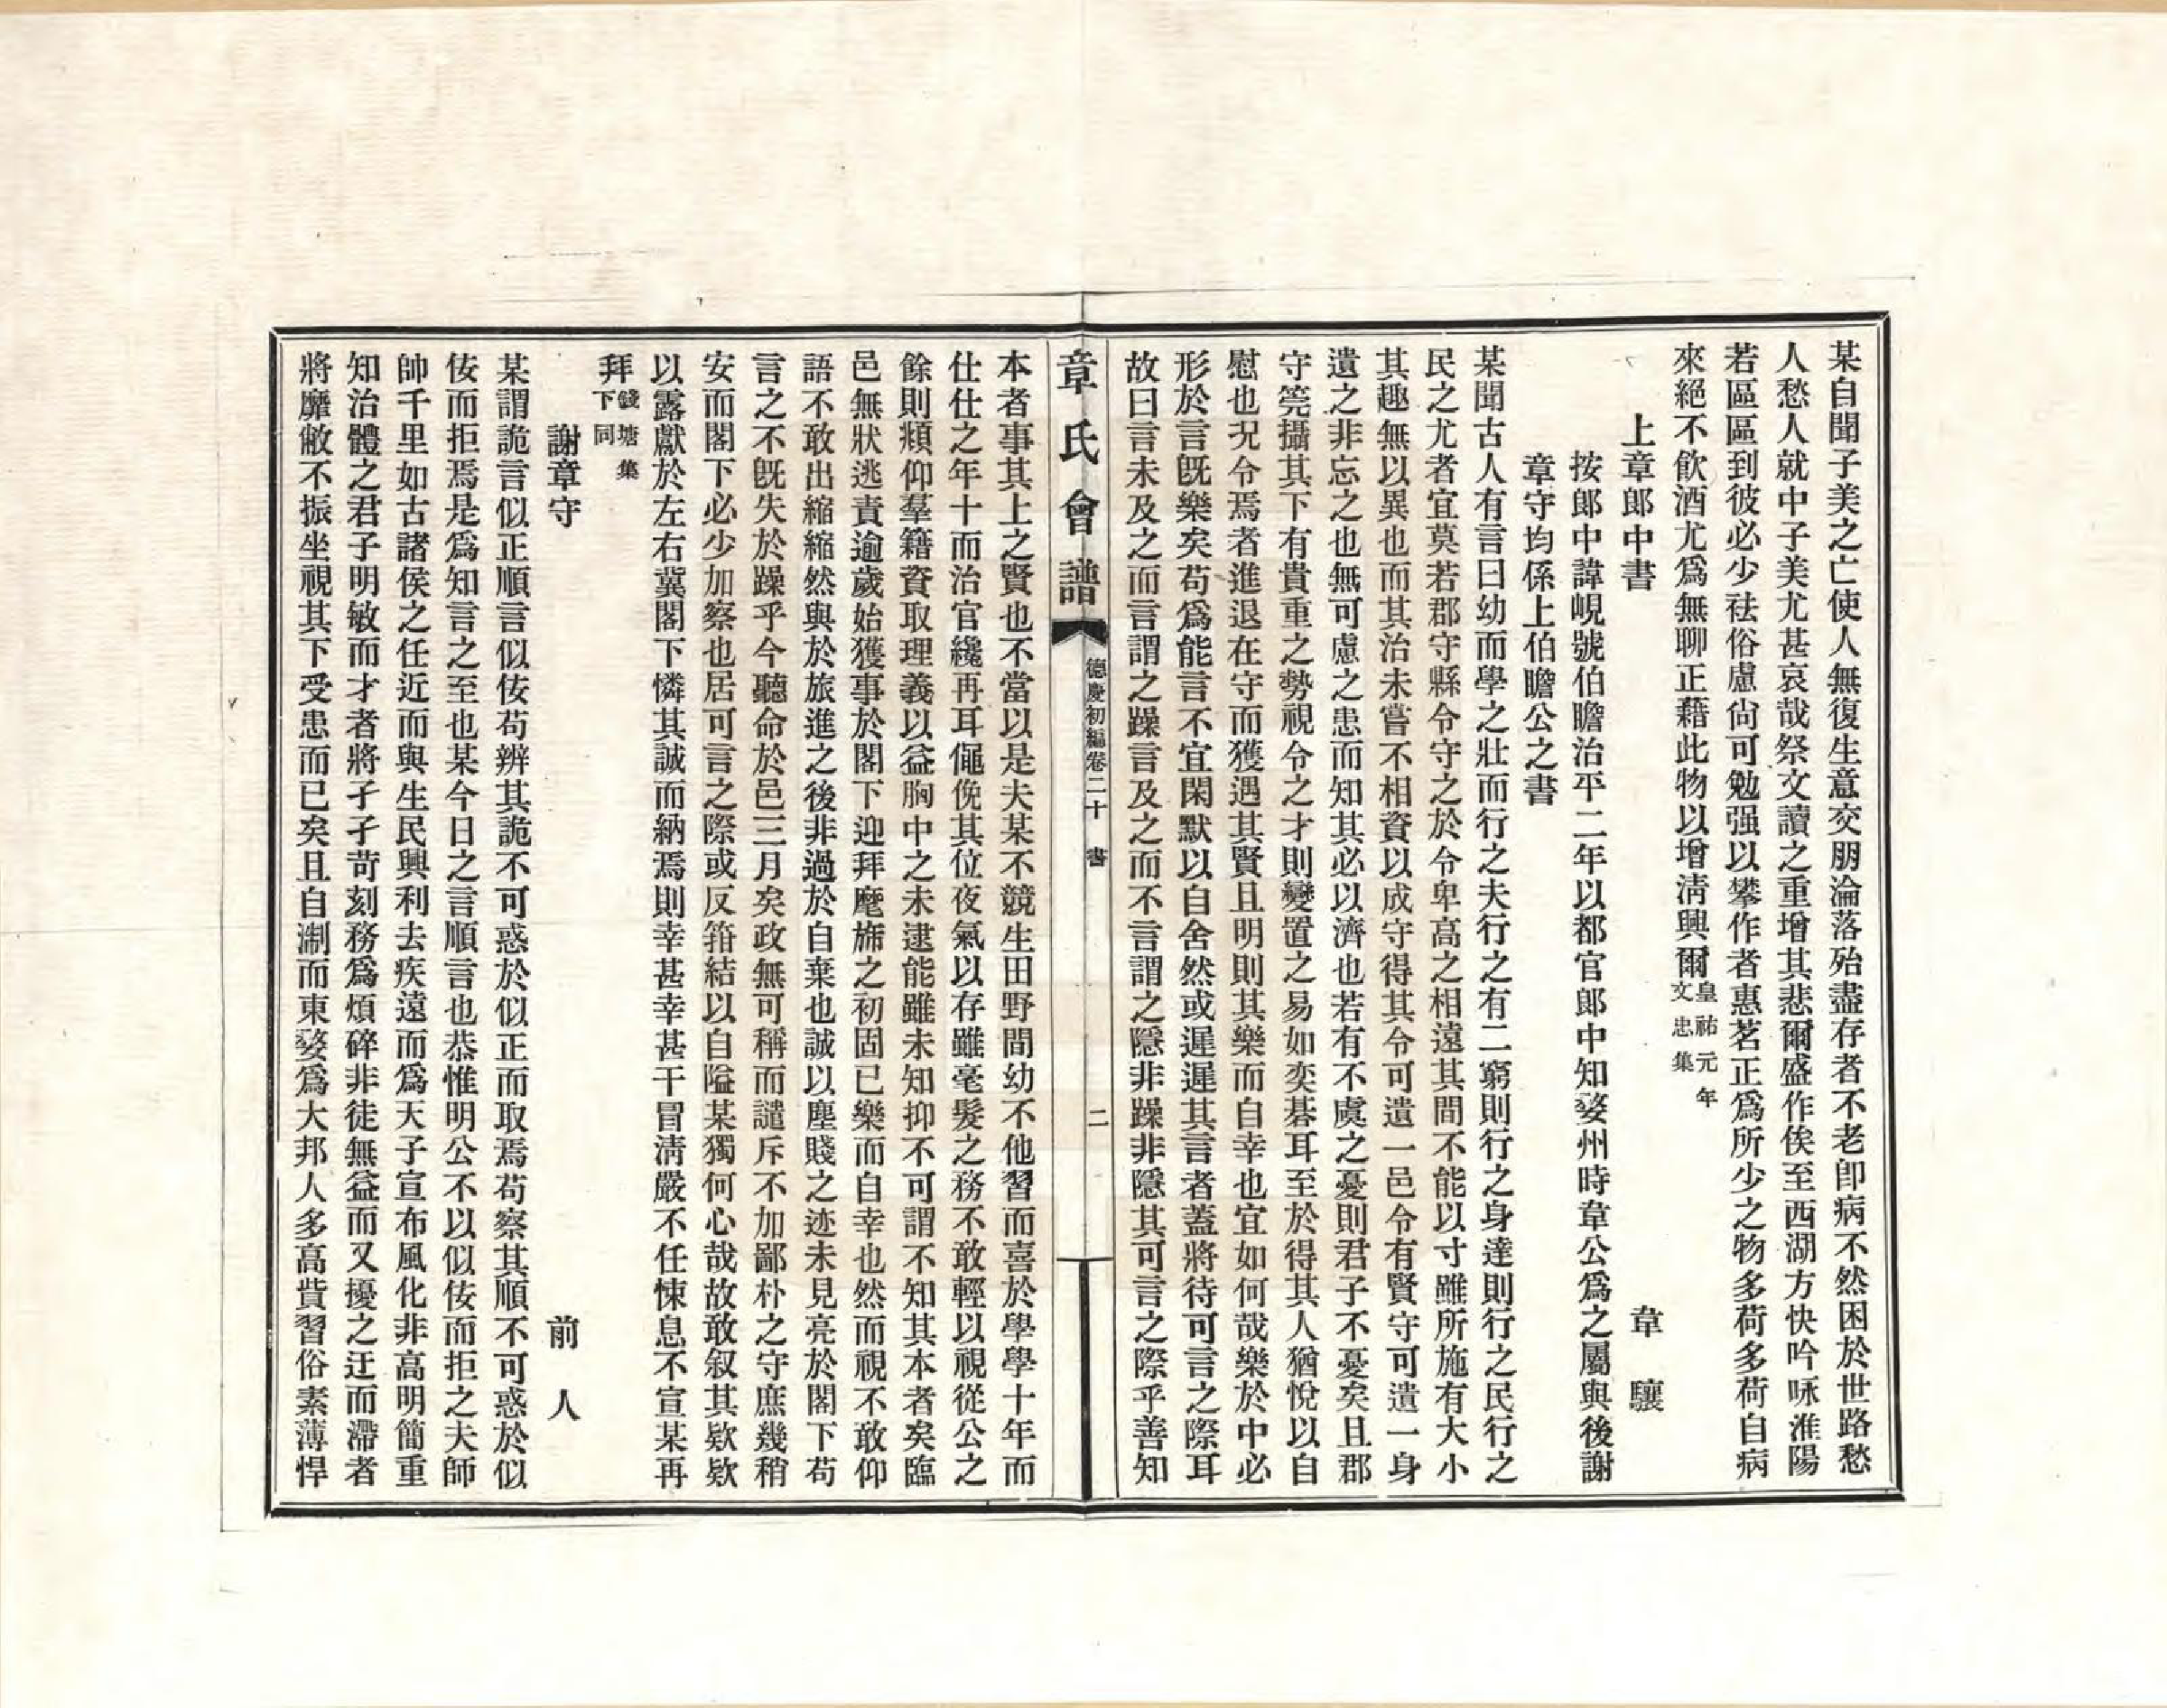 某自聞子美之亡使人無復生意交朋淪落殆盡存者不老卽病不然困於世路愁
人愁人就中子美尤甚哀哉祭文讀之重增其悲爾盛作俟至西湖方快吟咏淮陽
若區區到彼必少祛俗慮尙可勉强以攀作者惠茗正爲所少之物多荷多荷自病
來絕不飮酒尤爲無聊正藉此物以增淸興爾皇祐元年文忠集
上章郞中書　韋驤
按郞中諱峴號伯瞻治平二年以都官郞中知婺州時韋公爲之屬與後謝
章守均係上伯瞻公之書
某聞古人有言曰幼而學之壯而行之夫行之有二窮則行之身達則行之民行之
民之尤者宜莫若郡守縣令守之於令卑高之相遠其間不能以寸雖所施有大小
其趣無以異也而其治未嘗不相資以成守得其令可遺一邑令有賢守可遺一身
遺之非忘之也無可慮之患而知其必以濟也若有不虞之憂則君子不憂矣且郡
守筦攝其下有貴重之勢視令之才則變置之易如奕棊耳至於得其人猶悅以自
慰也況令焉者進退在守而獲遇其賢且明則其樂而自幸也宜如何哉樂於中必
形於言旣樂矣苟爲能言不宜閑默以自舍然或遲遲其言者蓋將待可言之際耳
故曰言未及之而言謂之躁言及之而不言謂之隱非躁非隱其可言之際乎善知
章氏會譜
德慶初編卷二十　書
二
本者事其上之賢也不當以是夫某不競生田野間幼不他習而喜於學學十年而
仕仕之年十而治官纔再耳僶俛其位夜氣以存雖毫髮之務不敢輕以視從公之
餘則頫仰羣籍資取理義以益胸中之未逮能雖未知抑不可謂不知其本者矣臨
邑無狀逃責逾歲始獲事於閣下迎拜麾旆之初固已樂而自幸也然而視不敢仰
語不敢出縮縮然與於旅進之後非過於自棄也誠以塵賤之迹未見亮於閣下苟
言之不旣失於躁乎今聽命於邑三月矣政無可稱而譴斥不加鄙朴之守庶幾稍
安而閣下必少加察也居可言之際或反箝結以自隘某獨何心哉故敢叙其欵欵
以露獻於左右冀閣下憐其誠而納焉則幸甚幸甚干冒淸嚴不任悚息不宣某再
拜錢塘集下同
謝章守　前人
某謂詭言似正順言似佞苟辨其詭不可惑於似正而取焉苟察其順不可惑於似
佞而拒焉是爲知言之至也某今日之言順言也恭惟明公不以似佞而拒之夫師
帥千里如古諸侯之任近而與生民興利去疾遠而爲天子宣布風化非高明簡重
知治體之君子明敏而才者將孑孑苛刻務爲煩碎非徒無益而又擾之迂而滯者
將靡敝不振坐視其下受患而已矣且自淛而東婺爲大邦人多高貲習俗素薄悍